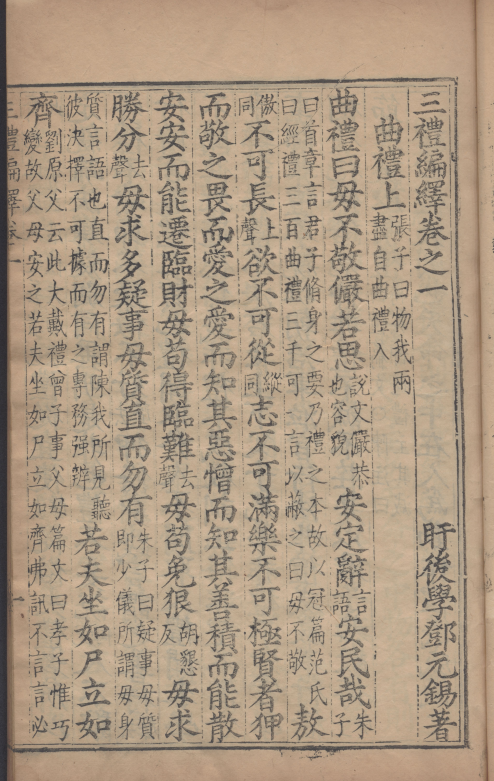 三禮編繹卷之一
盱後學鄧元錫著
曲禮上張子曰物我兩盡自曲禮入
曲禮曰毋不敬儼若思說文儼恭也容貌安定辭言語安民哉朱子
曰首章言君子脩身之要乃禮之本故以冠篇范氏曰經禮三百曲禮三千可一言以蔽之曰毋不敬敖
傲同不可長上聲欲不可從縱同志不可滿樂不可極賢者狎
而敬之畏而愛之愛而知其惡憎而知其善積而能散
安安而能遷臨財毋苟得臨難去聲毋苟免狠胡懇反毋求
勝分去聲毋求多疑事毋質直而勿有朱子曰疑事毋質即少儀所謂毋身
質言語也直而勿有謂陳我所見聽彼決擇不可據而有之專務强辨若夫坐如尸立如
齊劉原父云此大戴禮曾子事父母篇文曰孝子惟巧變故父母安之若夫坐如尸立如齊弗訊不言言必
三禮編繹卷一